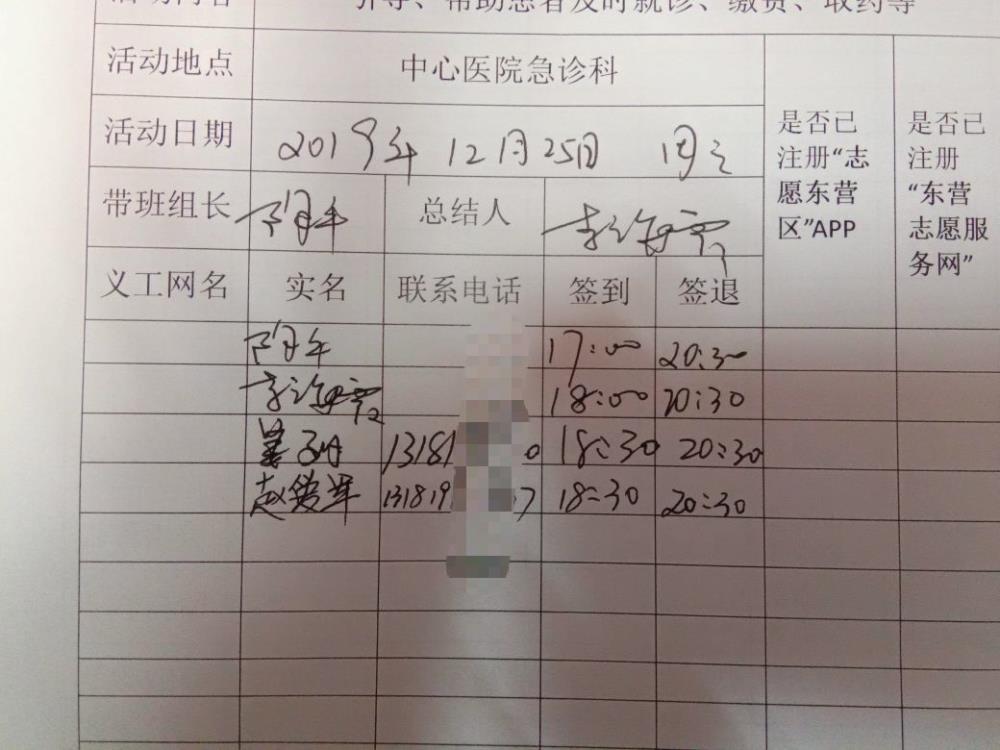 活动内容 引导、帮助患者及时就诊、缴费、取药等
活动地点 中心医院急诊科
活动日期 2019年12月25日 周三
是否已注册“志愿东营区”APP
是否已注册“东营志愿服务网”
带班组长 总结人
义工网名 实名 联系电话 签到 签退
17:00 20:30
18:00 20:30
13181 0 18:30 20:30
赵 131819 7 18:30 20:30